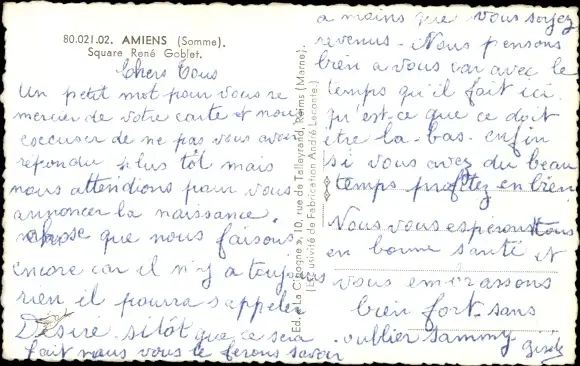 80.021.02. AMIENS (Somme).
Square René Goblet.
Chers Tous
un petit mot pour vous re
mercier de votre carte et nous
excuser de ne pas vous avoir
repondu plus tôt mais
nous attendions pour vous
annoncer la naissance.
chose que nous faisons
encore car il n'y a toujours
rien il pourra s'appeler
Désiré sitôt que ce sera
fait nous vous le ferons savoir
Ed. « La Cigogne », 10, rue de Talleyrand, Reims (Marne).
(Exclusivité de Fabrication André Leconte.)
a moins que vous soyez
revenus - Nous pensons
bien a vous car avec le
temps qu'il fait ici
qu'est-ce que ce doit
être la-bas. enfin
si vous avez du beau
temps profitez en bien
Nous vous esperons tous
en bonne santé et
vous embrassons
bien fort. sans
oublier Sammy